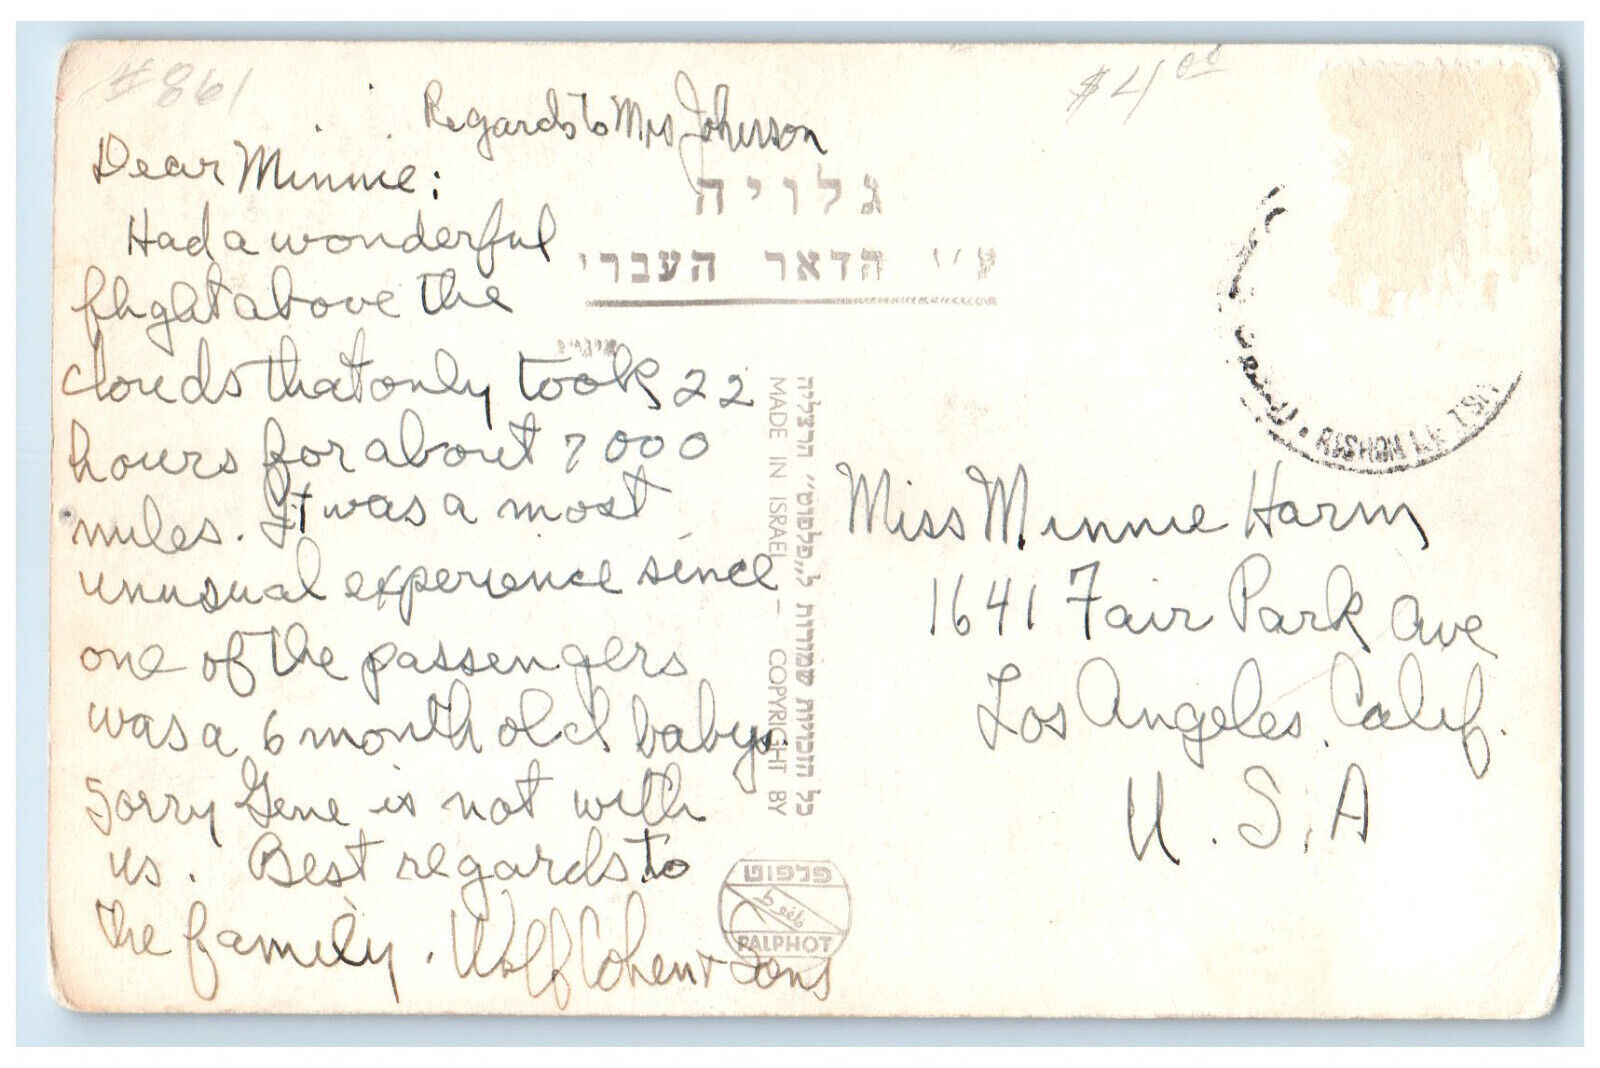 #861
$4.00
Regards to Mrs Johnson
Dear Minnie:
Had a wonderful
flight above the
clouds that only took 22
hours for about 7000
miles. It was a most
unusual experience since
one of the passengers
was a 6 month old baby.
Sorry Gene is not with
us. Best regards to
the family. Wolf Cohen & Sons
גלויה
ע״י הדאר העברי
כל הזכויות שמורות ל„פלפוט״ הרצליה
MADE IN ISRAEL - COPYRIGHT BY
פלפוט
PALPHOT
RISHON LE ZION
Miss Minnie Harm
1641 Fair Park Ave
Los Angeles, Calif.
U.S.A